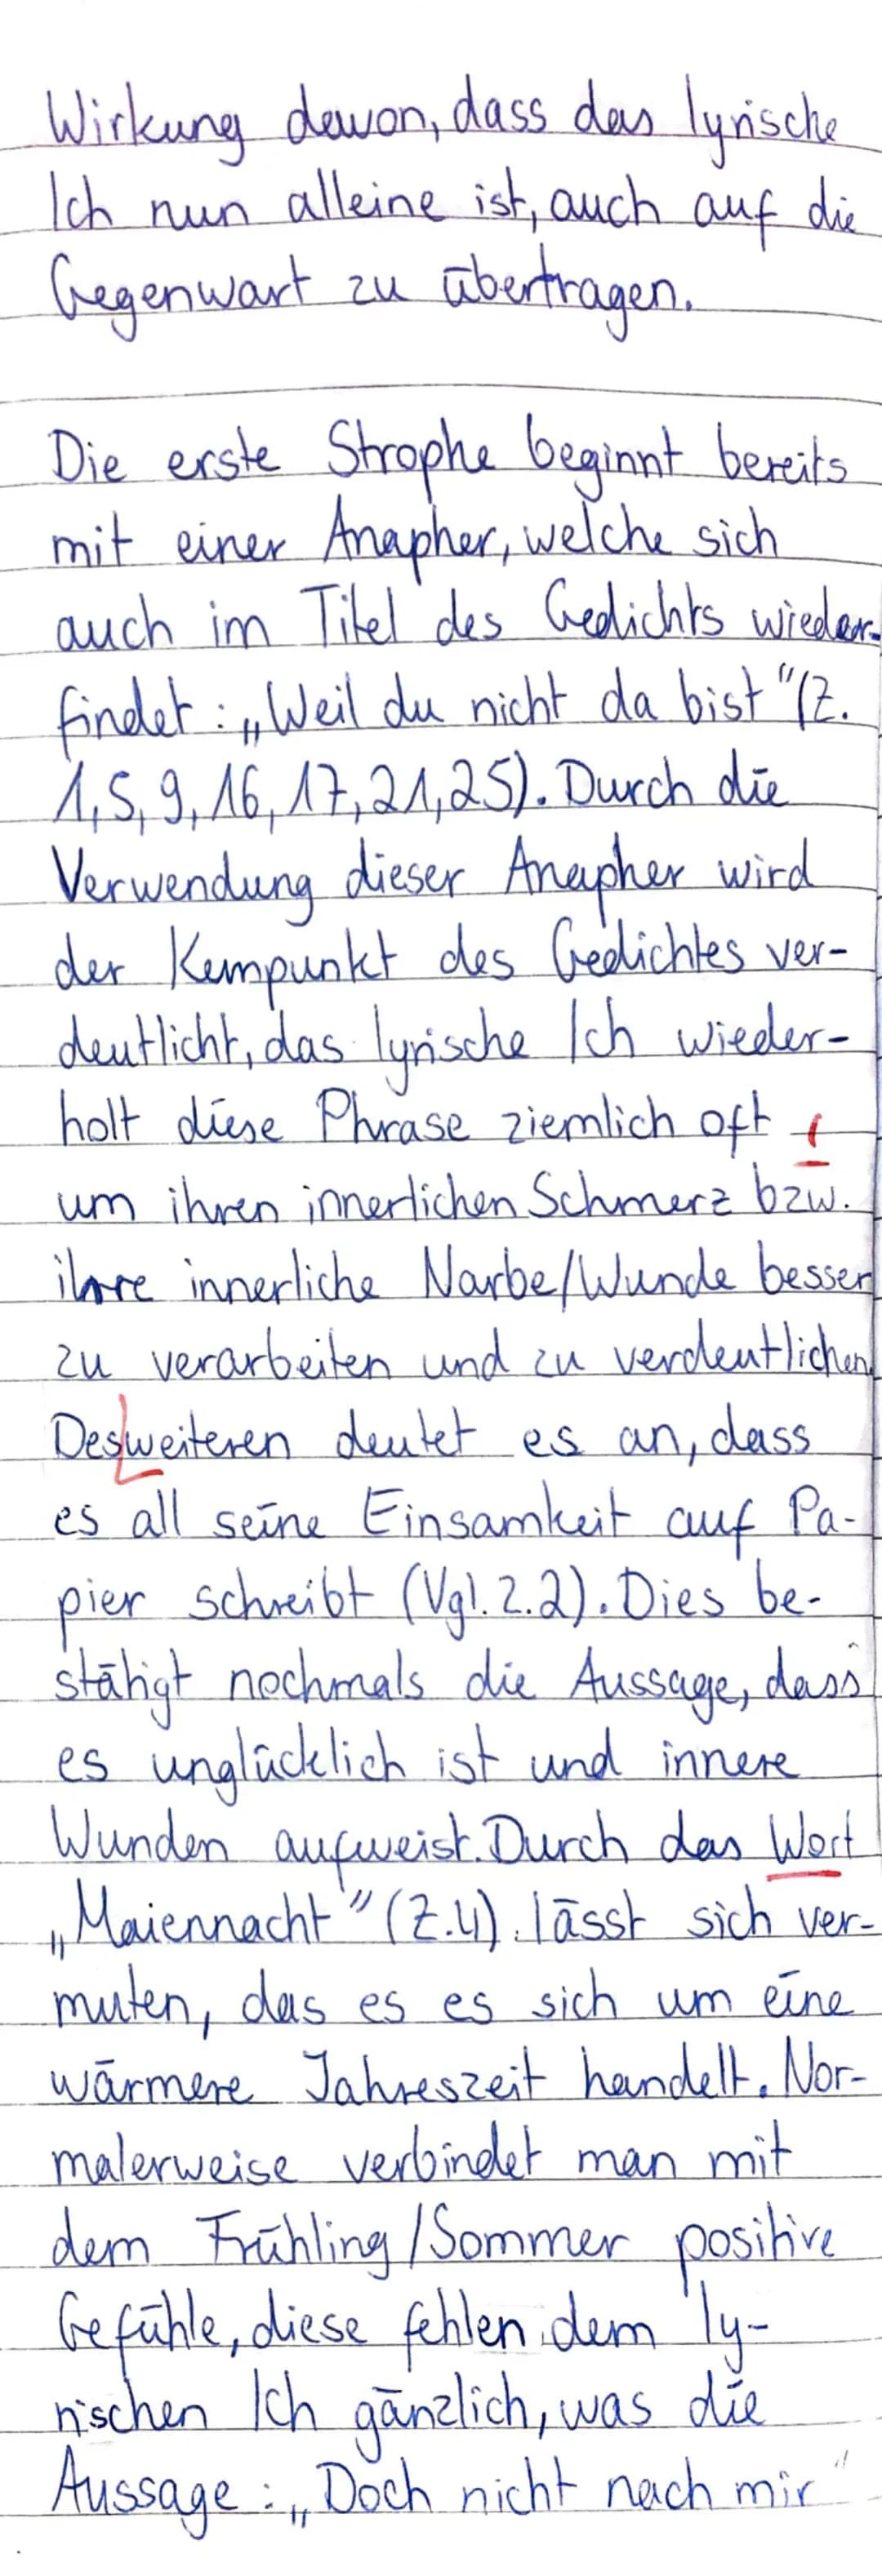 Wirkung davon, dass das lyrische
Ich nun alleine ist, auch auf die
Gegenwart zu übertragen.
Die erste Strophe beginnt bereits
mit einer Anapher, welche sich
auch im Titel des Gedichts wieder-
findet: „Weil du nicht da bist" (Z.
1, 5, 9, 16, 17, 21, 25). Durch die
Verwendung dieser Anapher wird
der Kernpunkt des Gedichtes ver-
deutlicht, das lyrische Ich wieder-
holt diese Phrase ziemlich oft ,
um ihren innerlichen Schmerz bzw.
ihre innerliche Narbe/Wunde besser
zu verarbeiten und zu verdeutlichen.
Desweiteren deutet es an, dass
es all seine Einsamkeit auf Pa-
pier schreibt (Vgl. Z.2). Dies be-
stätigt nochmals die Aussage, dass
es unglücklich ist und innere
Wunden aufweist. Durch das Wort
„Maiennacht" (Z.4) lässt sich ver-
muten, das es es sich um eine
wärmere Jahreszeit handelt. Nor-
malerweise verbindet man mit
dem Frühling/Sommer positive
Gefühle, diese fehlen dem ly-
rischen Ich gänzlich, was die
Aussage: „Doch nicht nach mir"